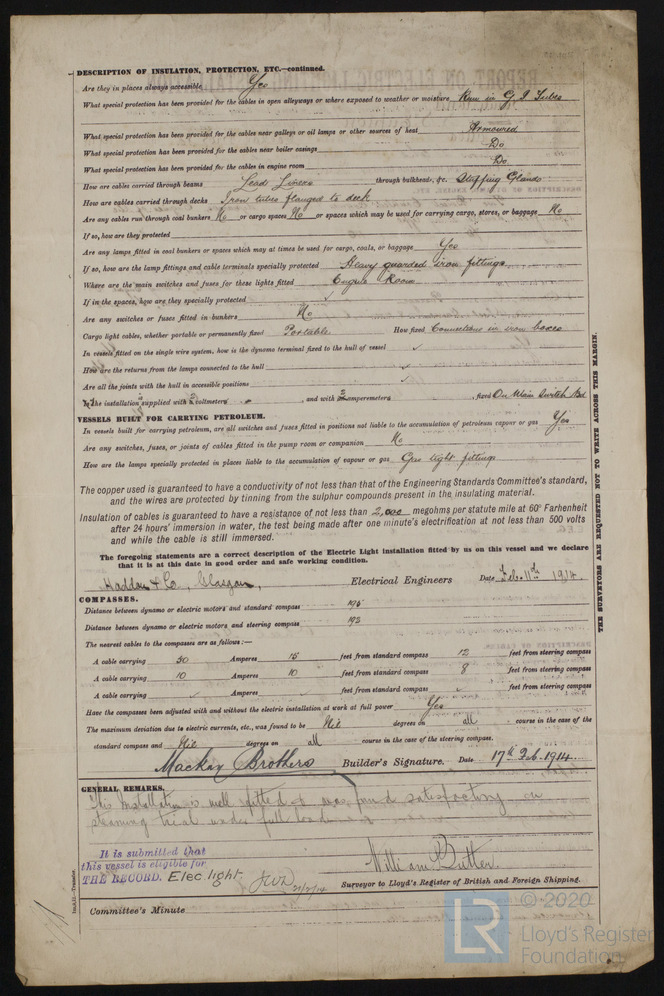 DESCRIPTION OF INSULATION, PROTECTION, ETC.—continued.
Are they in places always accessible Yes
What special protection has been provided for the cables in open alleyways or where exposed to weather or moisture Run in G I Tubes
What special protection has been provided for the cables near galleys or oil lamps or other sources of heat Armoured
What special protection has been provided for the cables near boiler casings Do
What special protection has been provided for the cables in engine room Do.
How are cables carried through beams Lead Liners through bulkheads, &c. Stuffing Glands
How are cables carried through decks Iron tubes flanged to deck
Are any cables run through coal bunkers No or cargo spaces No or spaces which may be used for carrying cargo, stores, or baggage No
If so, how are they protected
Are any lamps fitted in coal bunkers or spaces which may at times be used for cargo, coals, or baggage Yes
If so, how are the lamp fittings and cable terminals specially protected Heavy guarded iron fittings
Where are the main switches and fuses for these lights fitted Engine Room
If in the spaces, how are they specially protected ✓
Are any switches or fuses fitted in bunkers No
Cargo light cables, whether portable or permanently fixed Portable How fixed Connections in iron boxes
In vessels fitted on the single wire system, how is the dynamo terminal fixed to the hull of vessel ✓
How are the returns from the lamps connected to the hull ✓
Are all the joints with the hull in accessible positions ✓
The installation supplied with 2 voltmeters , and with 2 amperemeters , fixed On Main Switch Bd
VESSELS BUILT FOR CARRYING PETROLEUM.
In vessels built for carrying petroleum, are all switches and fuses fitted in positions not liable to the accumulation of petroleum vapour or gas Yes
Are any switches, fuses, or joints of cables fitted in the pump room or companion No
How are the lamps specially protected in places liable to the accumulation of vapour or gas Gas tight fittings
The copper used is guaranteed to have a conductivity of not less than that of the Engineering Standards Committee's standard,
and the wires are protected by tinning from the sulphur compounds present in the insulating material.
Insulation of cables is guaranteed to have a resistance of not less than 2,000 megohms per statute mile at 60° Farhenheit
after 24 hours' immersion in water, the test being made after one minute's electrification at not less than 500 volts
and while the cable is still immersed.
The foregoing statements are a correct description of the Electric Light installation fitted by us on this vessel and we declare
that it is at this date in good order and safe working condition.
Haddow & Co, Glasgow, Electrical Engineers Date Feb. 11th 1914.
COMPASSES.
Distance between dynamo or electric motors and standard compass 195
Distance between dynamo or electric motors and steering compass 192
The nearest cables to the compasses are as follows:—
A cable carrying 50 Amperes 15 feet from standard compass 12 feet from steering compass
A cable carrying 10 Amperes 10 feet from standard compass 8 feet from steering compass
A cable carrying ✓ Amperes ✓ feet from standard compass ✓ feet from steering compass
Have the compasses been adjusted with and without the electric installation at work at full power Yes
The maximum deviation due to electric currents, etc., was found to be Nil degrees on all course in the case of the
standard compass and Nil degrees on all course in the case of the steering compass.
Mackay Brothers Builder's Signature. Date 17th Feb. 1914.
GENERAL REMARKS.
This Installation is well fitted & was found satisfactory on
steaming trial under full load
It is submitted that
this vessel is eligible for
THE RECORD. Elec light 21/2/14
William Butler
Surveyor to Lloyd's Register of British and Foreign Shipping.
Committee's Minute
THE SURVEYORS ARE REQUESTED NOT TO WRITE ACROSS THIS MARGIN.
© 2020
LR
Lloyd's Register
Foundation